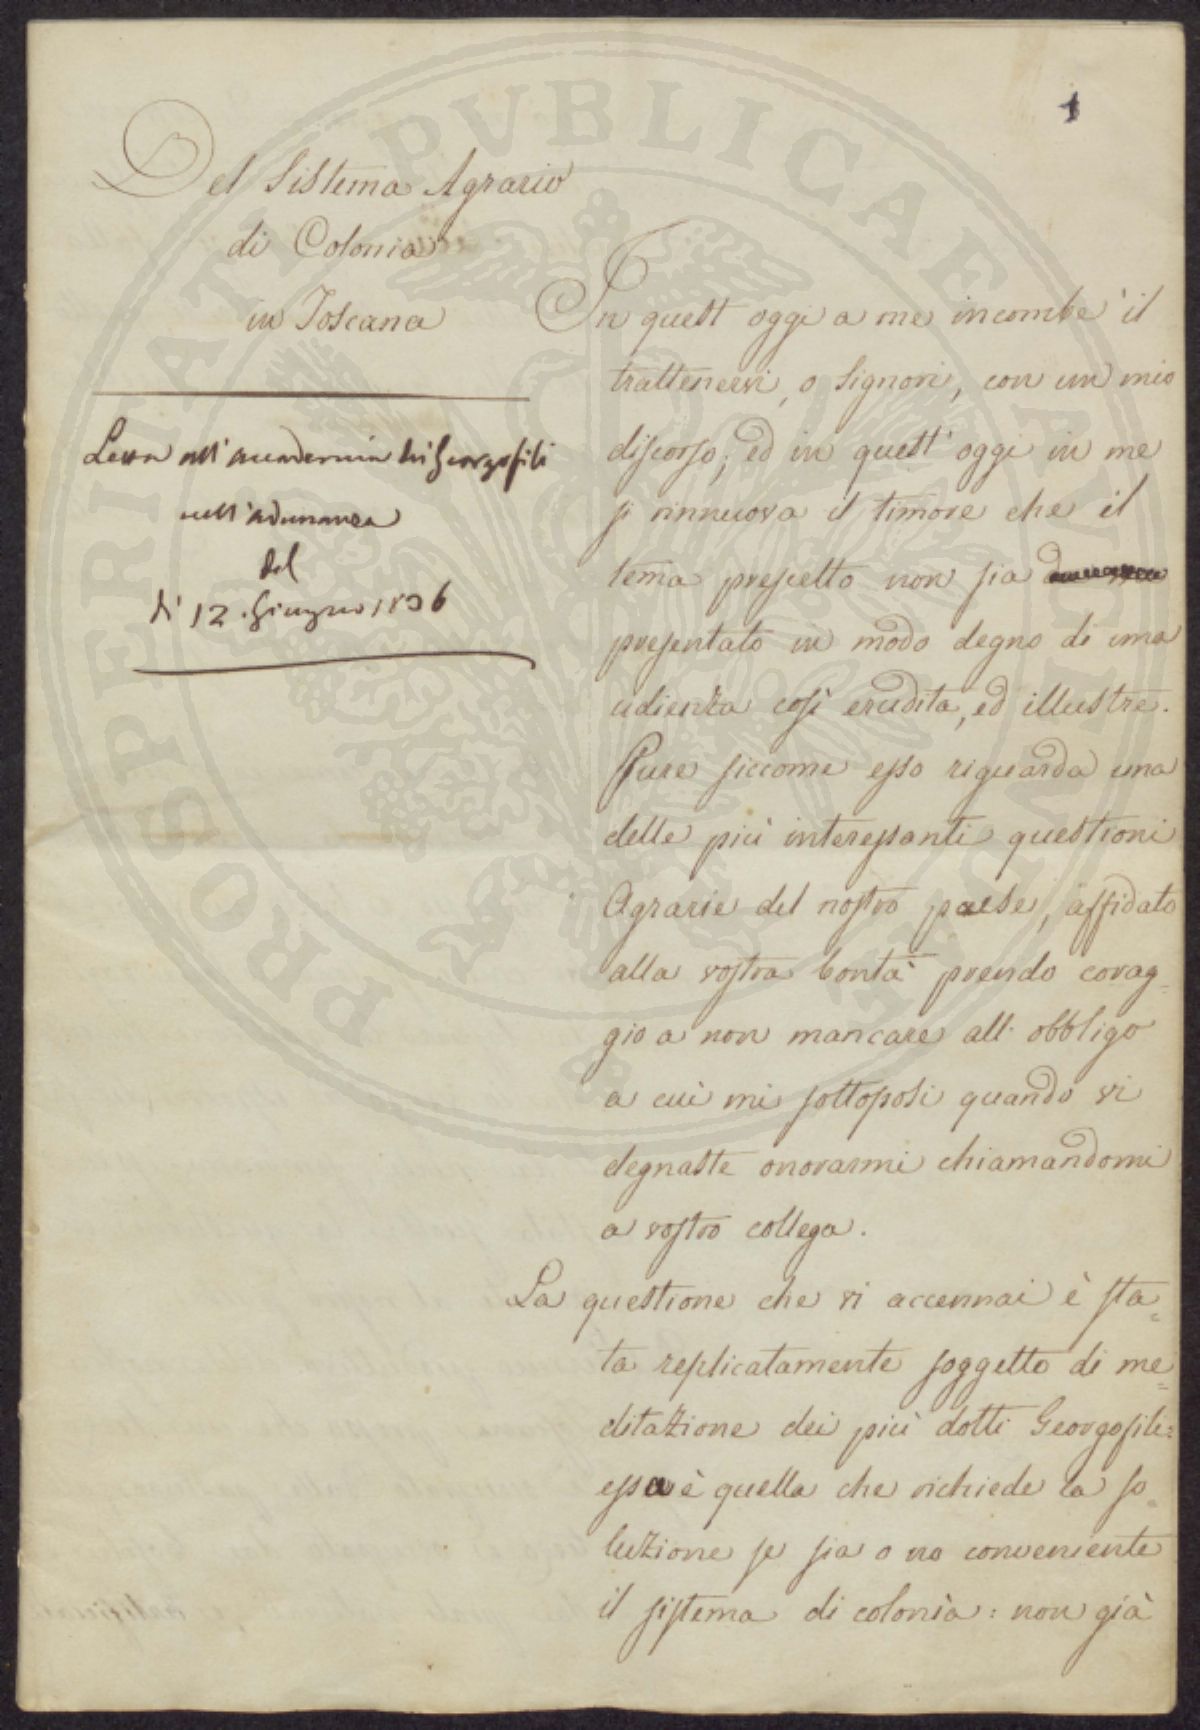 1
Del Sistema Agrario
di Colonia
in Toscana
Letta all'accademia dei Georgofili
nell'adunanza
del
dì 12. Giugno 1836
In quest oggi a me incombe il
trattenervi, o Signori, con un mio
discorso; ed in quest' oggi in me
si rinnuova il timore che il
tema prescelto non sia
presentato in modo degno di una
udienza così erudita, ed illustre.
Pure siccome esso riguarda una
delle più interessanti questioni
Agrarie del nostro paese, affidato
alla vostra bontà prendo corag-
gio a non mancare all' obbligo
a cui mi sottoposi quando vi
degnaste onorarmi chiamandomi
a vostro collega.
La questione che vi accennai è sta=
ta replicatamente soggetto di me=
ditazione dei più dotti Georgofili:
essa è quella che richiede la so=
luzione se sia o no conveniente
il sistema di colonìa: non già
PROSPERITATI PVBLICAE AVGENDAE